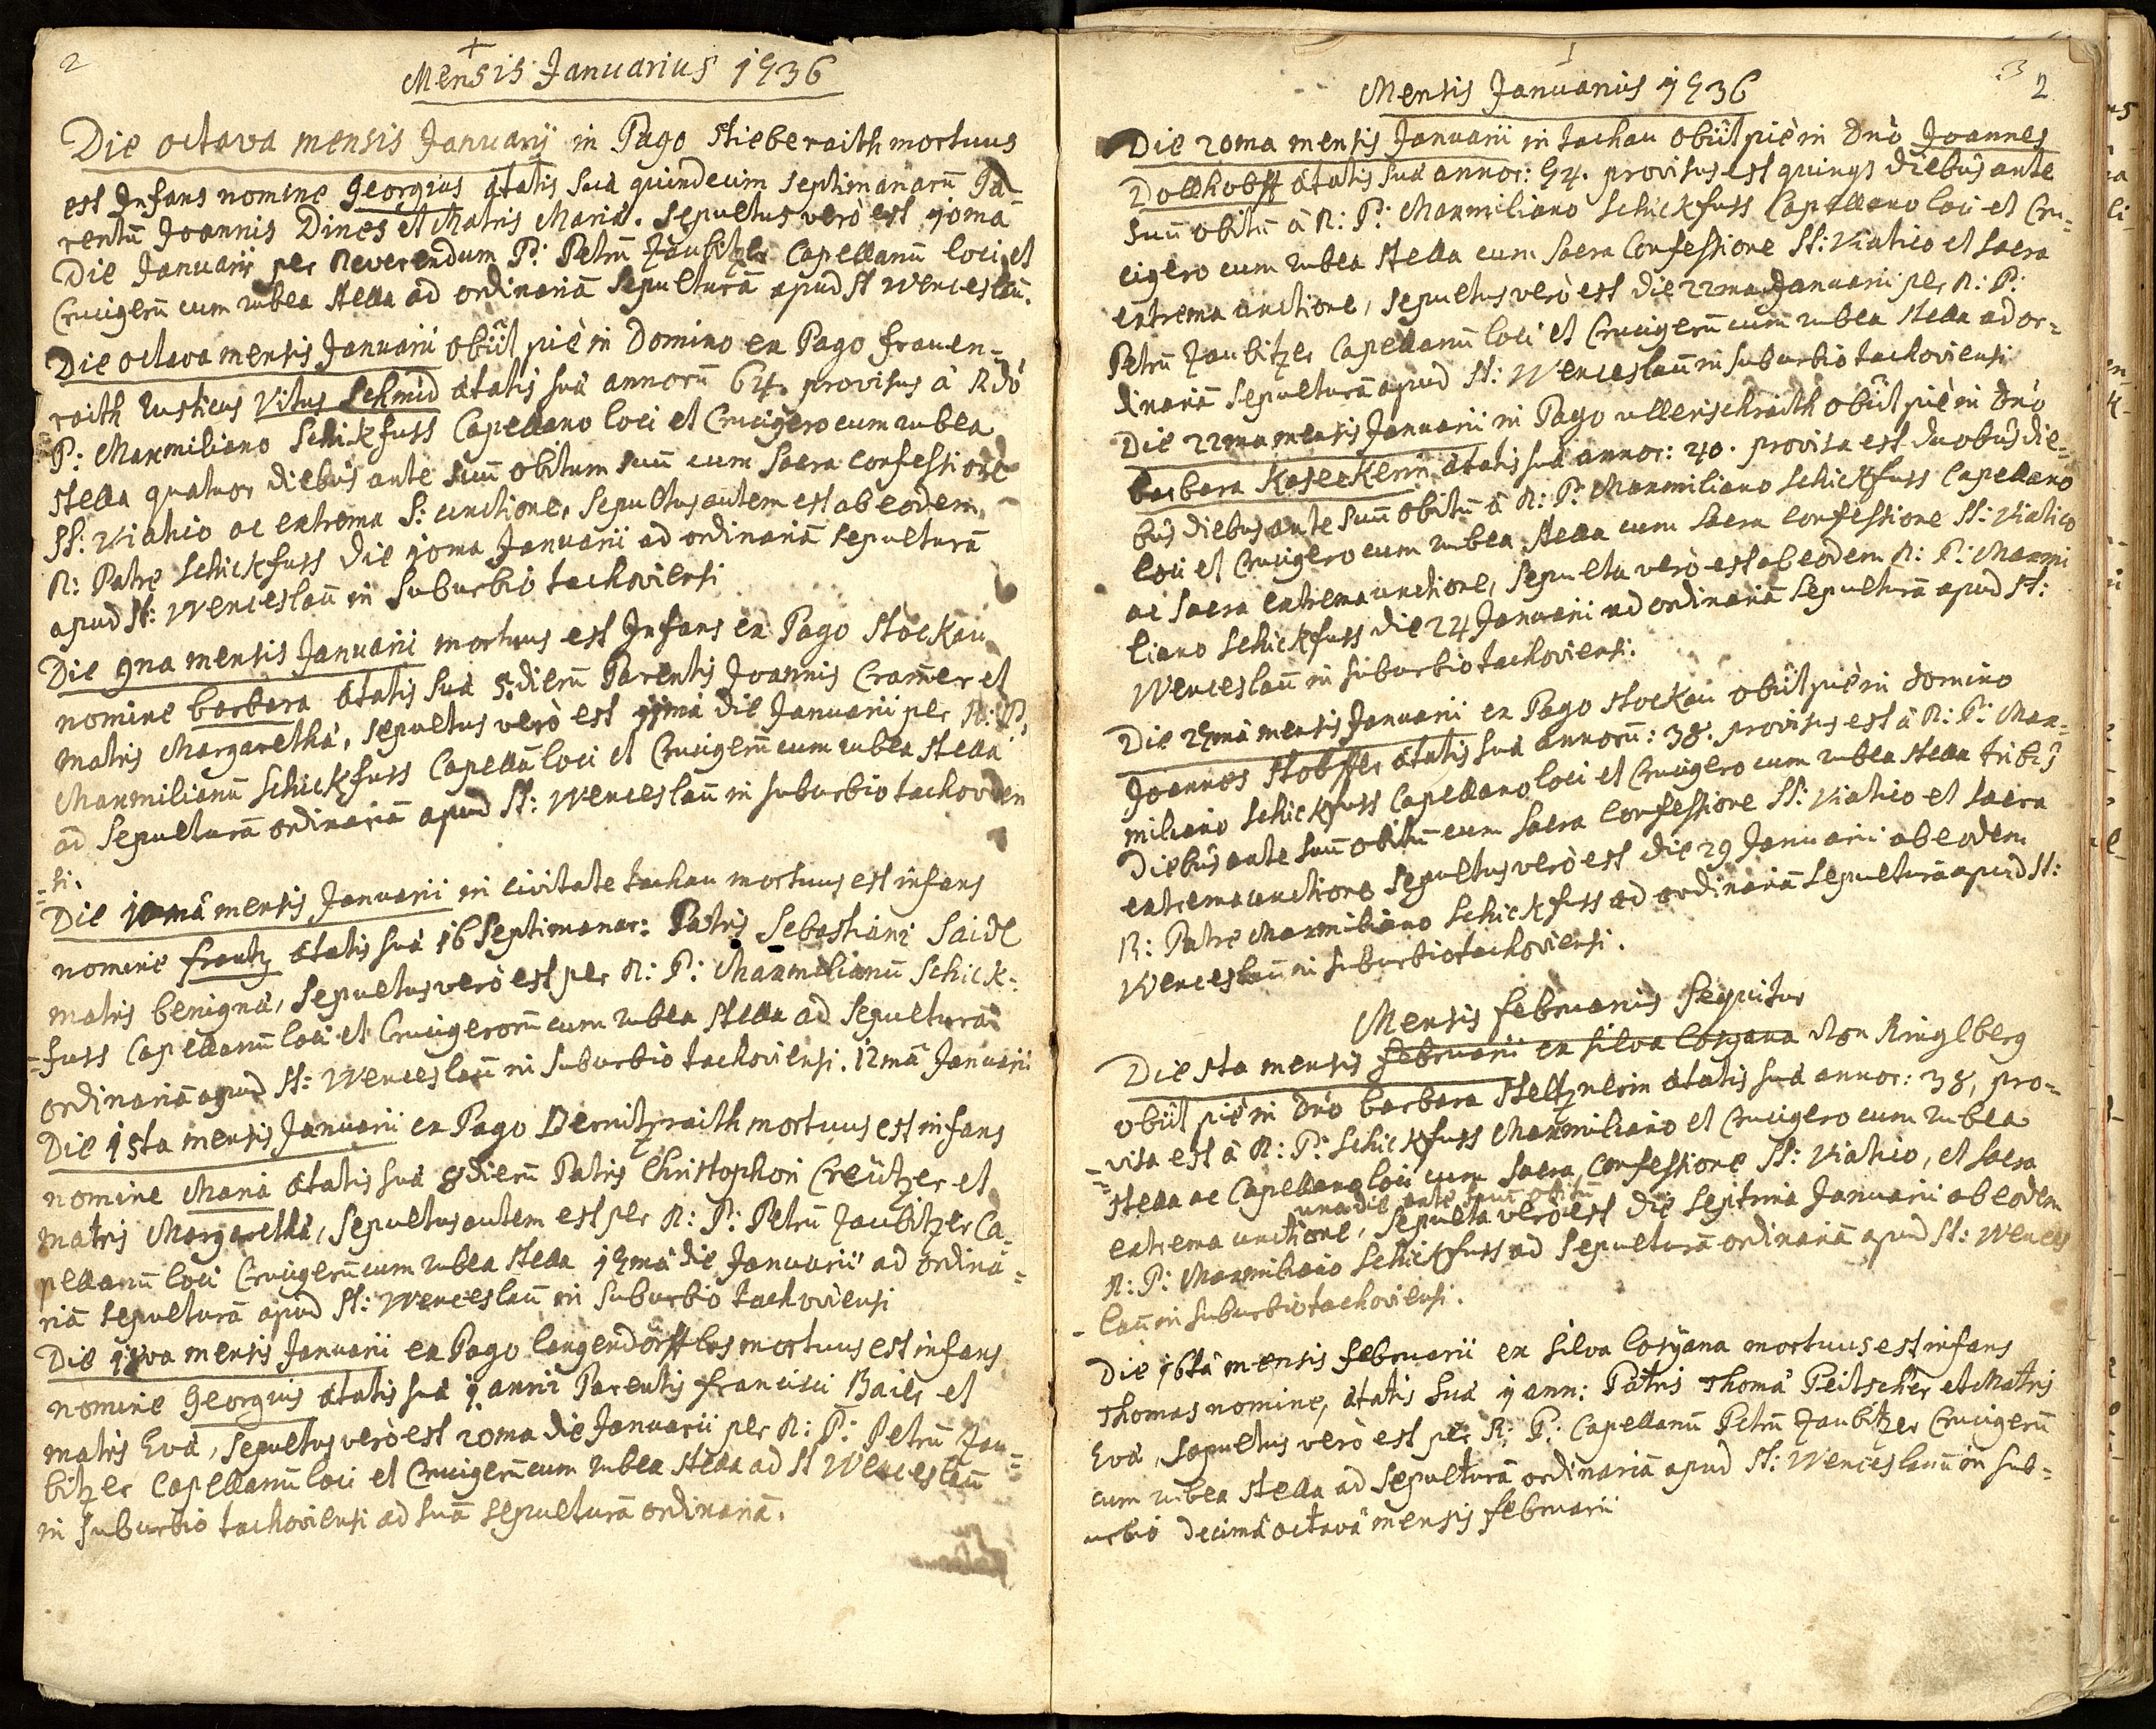 2
+
Mensis Januarius 1736
Die octava mensis Januarij in Pago Stieberaith mortuus
est Infans nomine Georgius ætatis suæ quindecim septimanarũ Pa-
rentũ Joannis Dines et Matris Mariæ. sepultus verò est 10ma
Die Januarii per Reverendum P: Petrũ Zaubitzer Capellanũ loci et
Crucigerũ cum rubea stella ad ordinariã sepulturã apud St Wenceslaũ.
Die octava mensis Januarii obiit piè in Domino ex Pago frauen=
raith rusticus Vitus Schmid ætatis suæ annorũ 64. provisus à Rdo
P: Maxmiliano Schickfuss Capellano loci et Crucigero cum rubea
stella quatuor diebus ante suũ obitum suũ cum sacra confessione
SS: Viatico ac extrema S: unctione, sepultus autem est ab eodem
R: Patre Schickfuss die 10ma Januarii ad ordinariã sepulturã
apud St: Wenceslaũ in suburbio tachoviensi
Die 9na mensis Januarii mortuus est Infans ex Pago Stockau
nomine barbara ætatis suæ 5. dierũ Parentis Joannis Cramer et
matris Margarethæ, sepultus verò est 11ma die Januarii per R: P:
Maxmilianũ Schickfuss Capellã loci et Crucigerũ cum rubea stella
ad sepulturã ordinariã apud St: Wenceslaũ in suburbio tachovien
=si.
Die 10mâ mensis Januarii in civitate tachau mortuus est infans
nomine frantz ætatis suæ 16 septimanar: Patris Sebastiani Saidl
matris benignæ, sepultus verò est per R: P: Maxmilianũ Schick=
=fuss Capellanũ loci et Crucigerorũ cum rubea stella ad sepulturã
ordinariã apud St: Wenceslaũ in suburbio tachoviensi. 12mâ Januarii
Die 15ta mensis Januarii ex Pago Bernitzraith mortuus est infans
nomine Maria ætatis suæ 8 dierũ Patris Christophori Creützer et
matris Margarethæ, sepultus autem est per R: P: Petrũ Zaubitzer Ca=
pellanũ loci Crucigerũ cum rubea stella 17mâ die Januarii ad ordina=
riã sepulturã apud St: Wenceslaũ in suburbio tachoviensi
Die 18va mensis Januarii ex Pago langendörfflas mortuus est infans
nomine Georgius ætatis suæ 1. anni Parentis francisci Baier et
matris Evæ, sepultus verò est 20ma die Januarii per R: P: Petrũ Zau=
bitzer Capellanũ loci et Crucigerũ cum rubea stella ad St Wenceslaũ
in suburbio tachoviensi ad suã sepulturã ordinariã.
3
2
Mensis Januarius 1736
Die 20ma mensis Januarii in tachau obiit piè in Dnò Joannes
Dollhobff ætatis suæ annor: 74. provisus est quinqz diebus ante
suũ obitũ à R: P: Maxmiliano Schickfuss Capellano loci et Cru=
cigero cum rubea stella cum sacra Confessione SS: Viatico et sacra
extrema unctione, sepultus verò est die 22ma Januarii per R: P:
Petrũ Zaubitzer Capellanũ loci et Crucigerũ cum rubea stella ad or=
dinariã sepulturã apud St: Wenceslaũ in suburbio tachoviensi
Die 22ma mensis Januarii in Pago ullerischraith obiit piè in Dnò
barbara Kaseckerin ætatis suæ annor: 40. provisa est duobus die=
bus diebus ante suũ obitũ à R: P: Maxmiliano Schickfuss Capellano
loci et Crucigero cum rubea stella cum sacra confessione SS: Viatico
ac sacra extrema unctione, sepulta verò est ab eodem R: P: Maxmi
liano Schickfuss die 24 Januarii ad ordinariã sepulturã apud St:
Wenceslaũ in suburbio tachoviensi.
Die 27mâ mensis Januarii ex Pago stockau obiit piè in Domino
Joannes Stobffer ætatis suæ annorũ: 38. provisus est à R: P: Max=
miliano Schickfuss Capellano loci et Crucigero cum rubea stella tribus
Diebus ante suũ obitũ cum sacra Confessione SS: Viatico et sacra
extrema unctione sepultus verò est die 29 Januarii ab eodem
R: Patre Maxmiliano Schickfuss ad ordinariã sepulturã apud St:
Wenceslaũ in suburbio tachoviensi.
Mensis februarius sequitur
Die 5ta mensis februarii ex silva losyana von Ringlberg
obiit piè in Dnò barbara Steltznerin ætatis suæ annor: 38, pro=
visa est à R: P: Schickfuss Maxmiliano et Crucigero cum rubea
stella ac Capellano loci cum sacra Confessione SS: Viatico, et sacra
una die ante suũ obitũ
extrema unctione, sepulta verò est die septima Januarii ab eodem
R: P: Maxmiliano Schickfuss ad sepulturã ordinariã apud St: Wences
laũ in suburbio tachoviensi.
Die 16tâ mensis februarii ex silva losyana mortuus est infans
Thomas nomine, ætatis suæ 1 ann: Patris Thomæ Peitscher et Matris
Evæ, sepultus verò est per R: P: Capellanũ Petrũ Zaubitzer Crucigerũ
cum rubea stella ad sepulturã ordinariã apud St: Wenceslaum in sub=
urbio decimâ octavâ mensis februarii